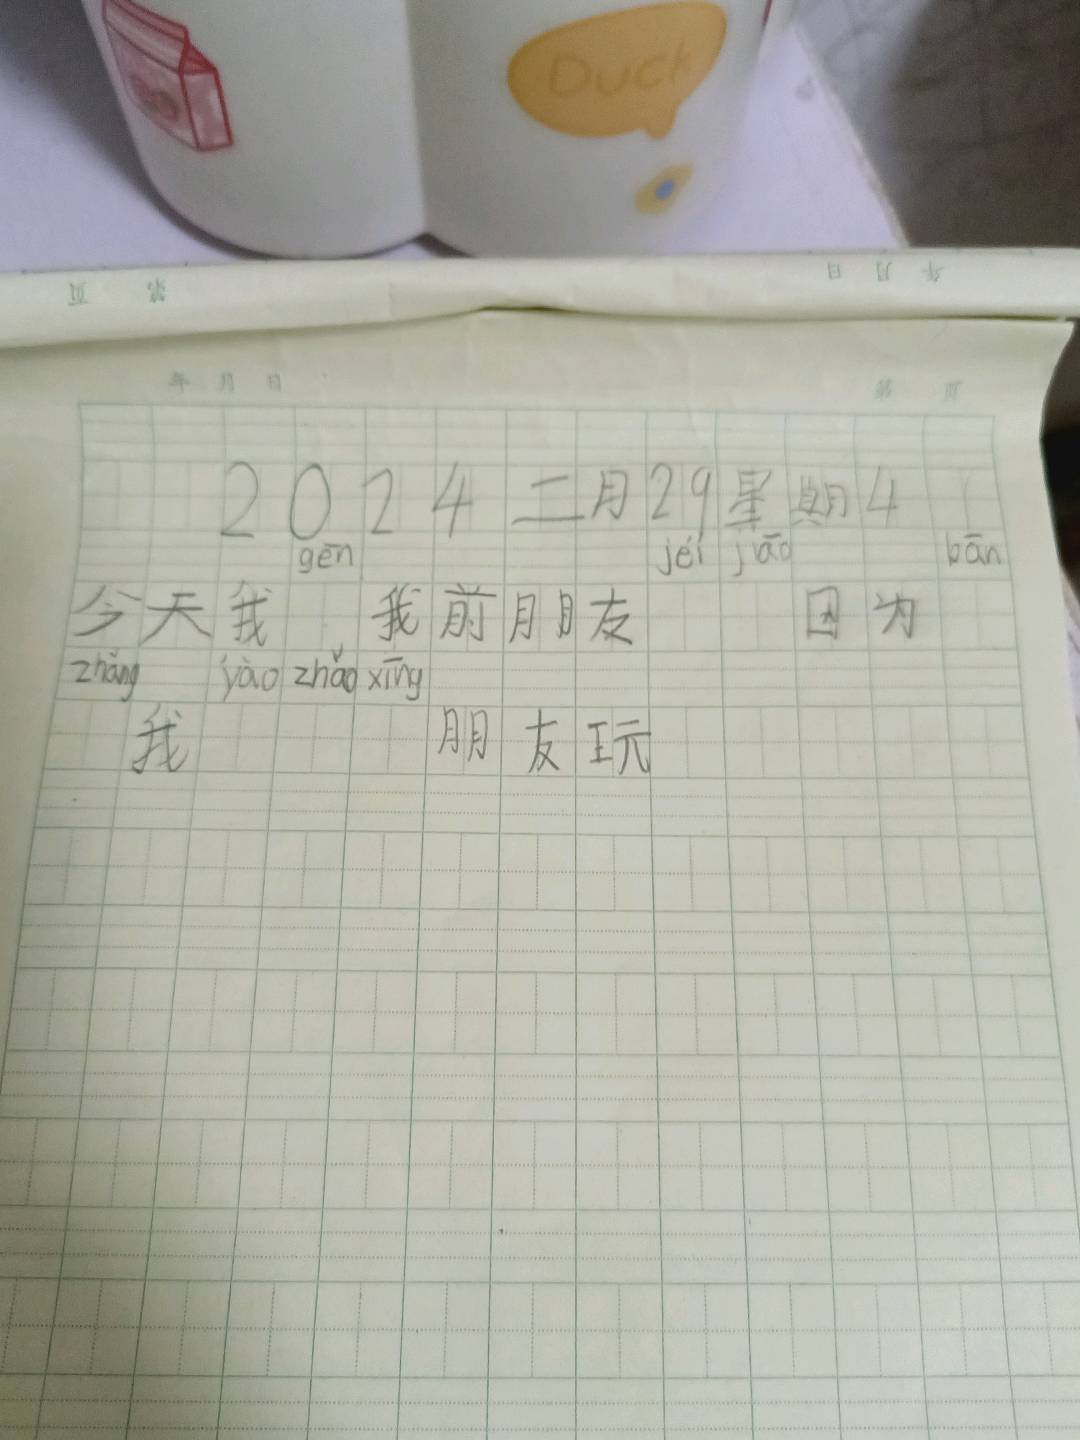 Duck
第 页
年 月 日
年 月 日 第 页
2024二月29星期4
gēn jéi jiāo bān
今天我 我前朋友 因为
zhǎng yào zhǎo xīng
我 朋友玩